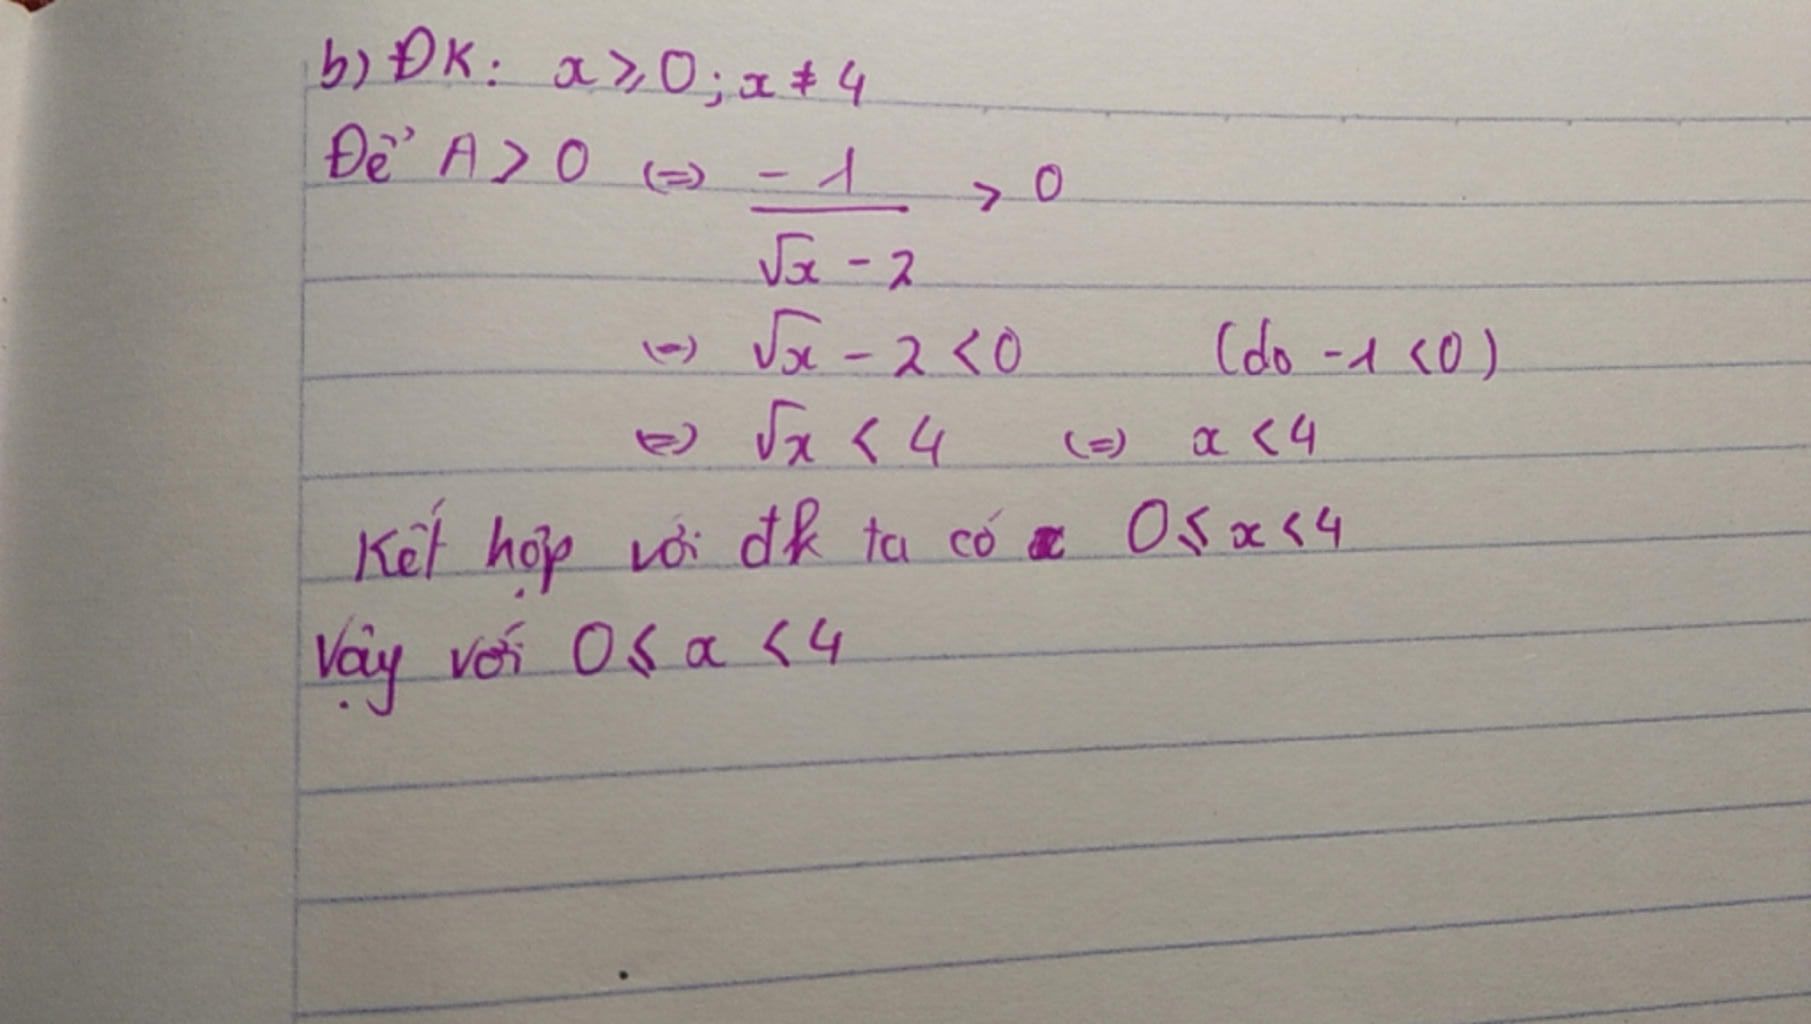 b) ĐK: x ≥ 0; x ≠ 4
Để A > 0 (=) -1/(√x - 2) > 0
(=) √x - 2 < 0 (do -1 < 0)
(=) √x < 4 (=) x < 4
Kết hợp với đk ta có 0 ≤ x < 4
Vậy với 0 ≤ x < 4